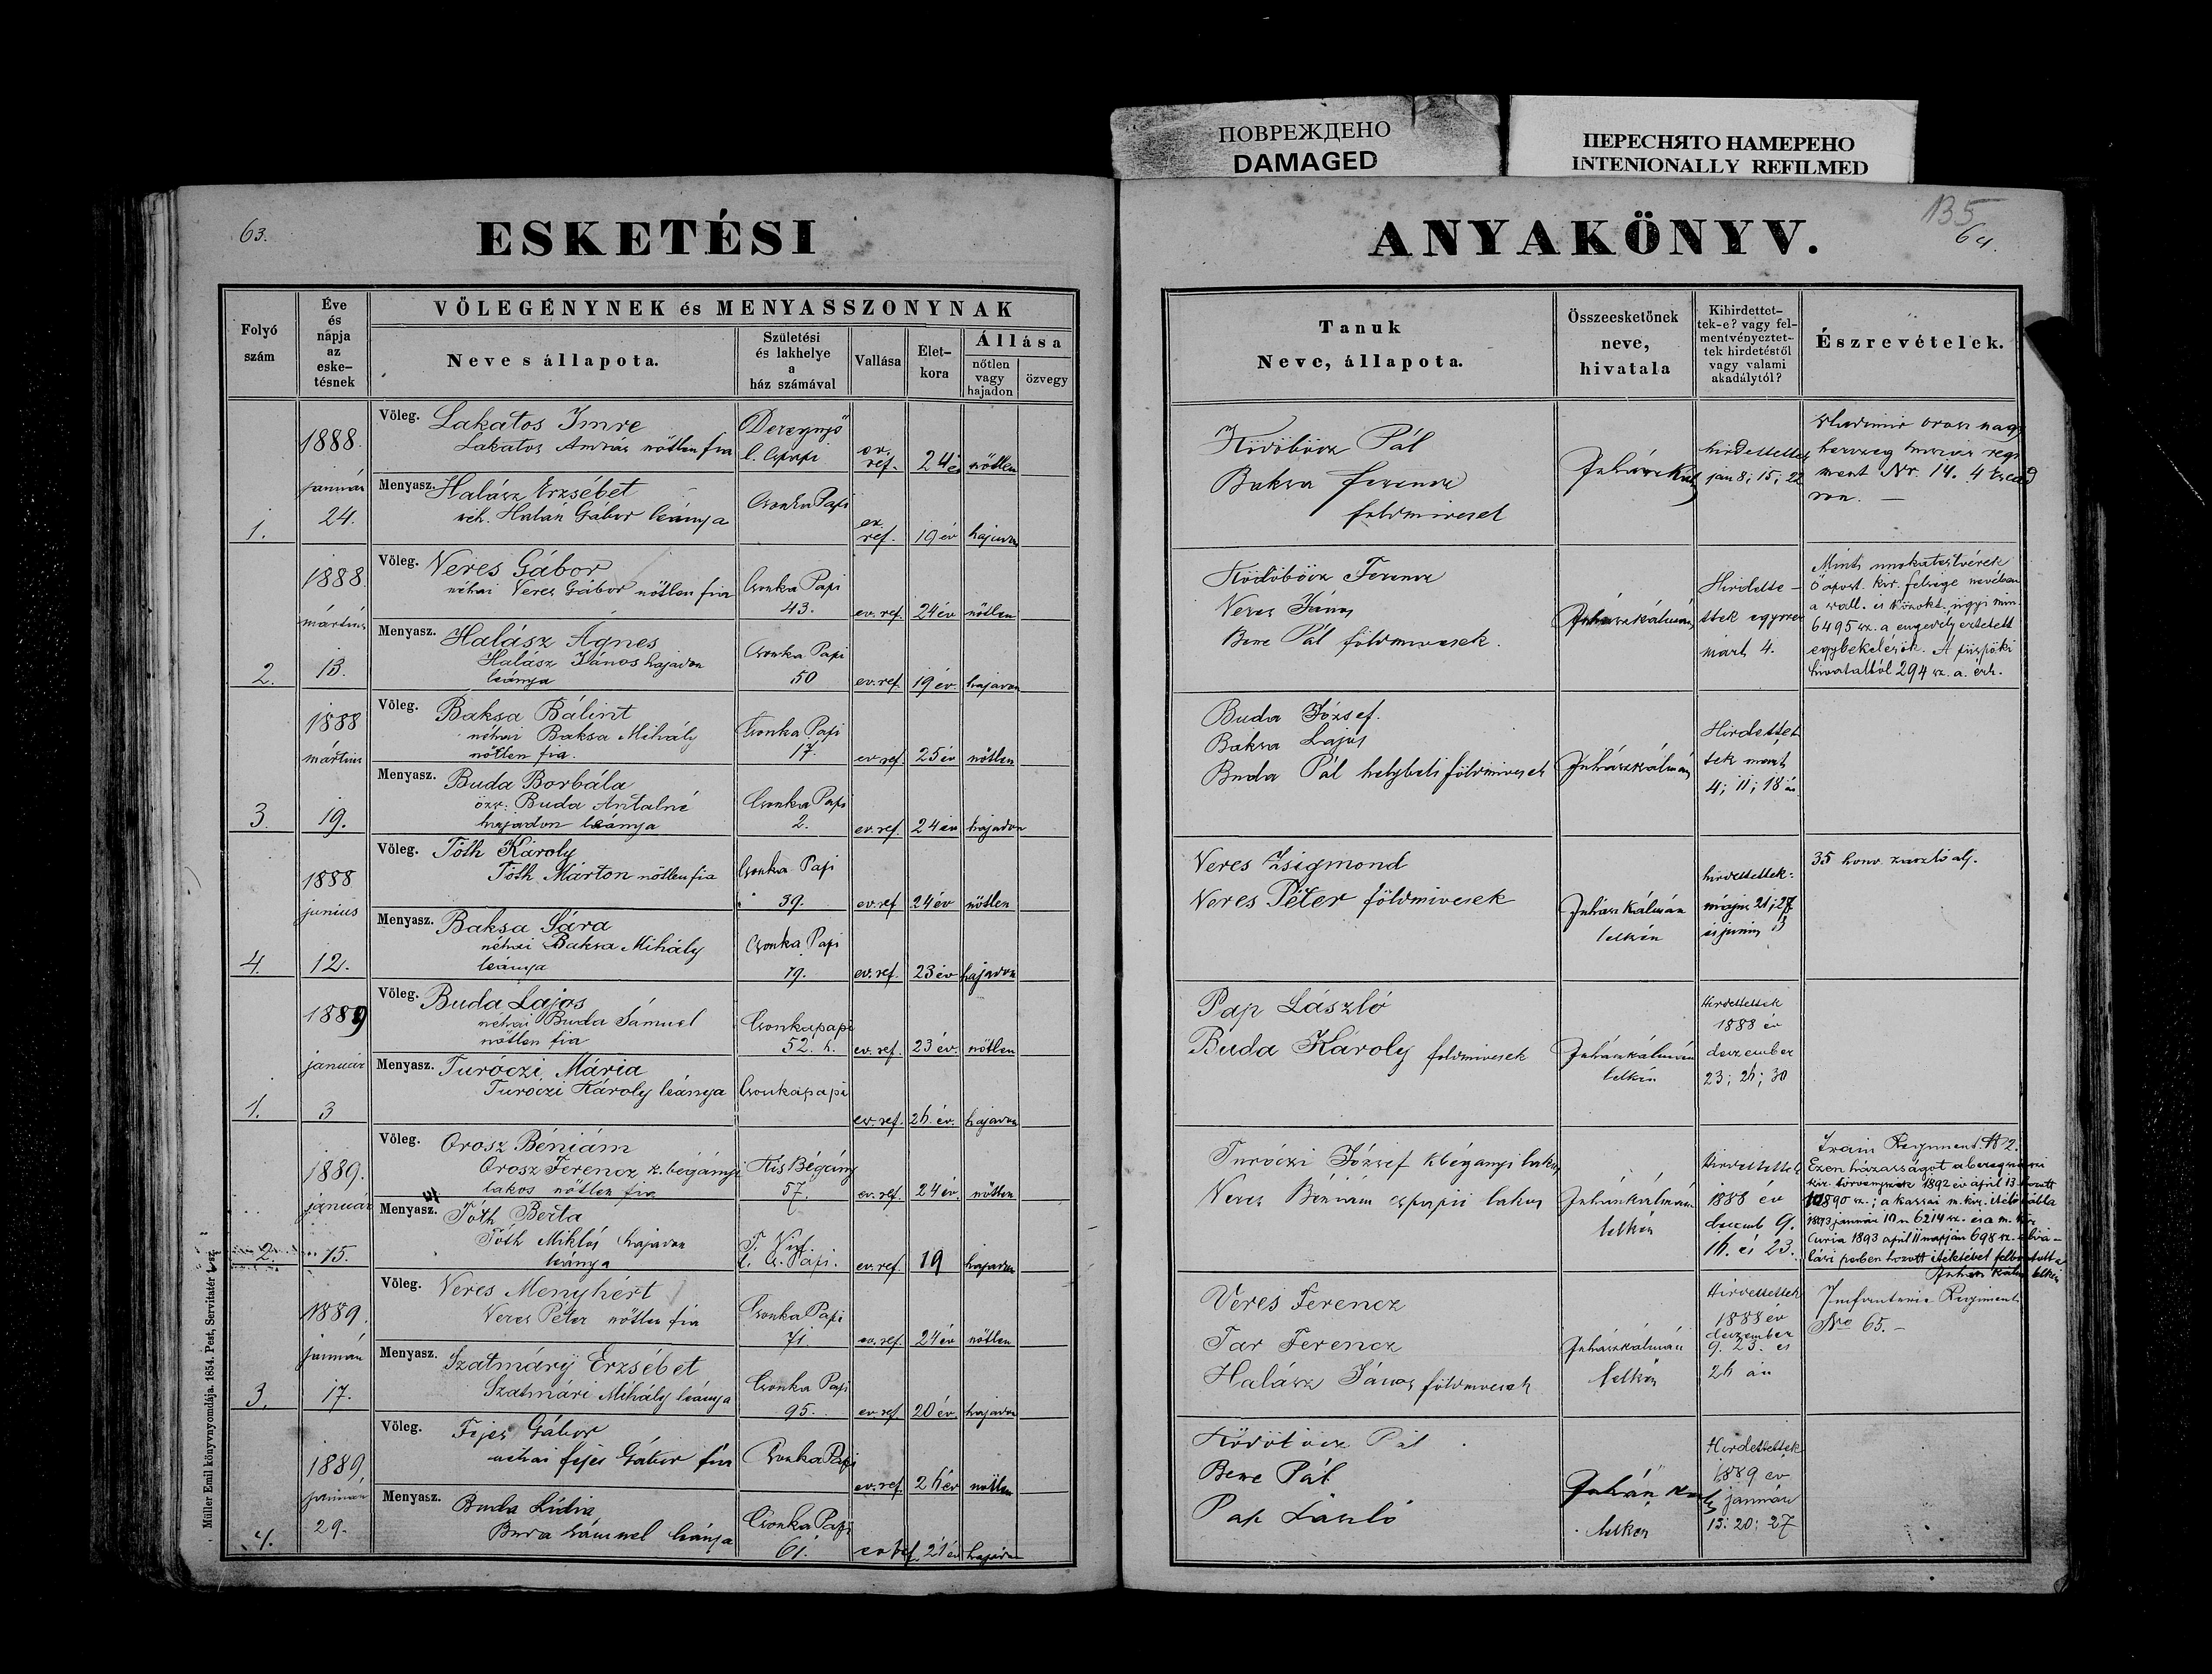 ПОВРЕЖДЕНО
DAMAGED
ПЕРЕСНЯТО НАМЕРЕНО
INTENIONALLY REFILMED
63.
ESKETÉSI
Folyó szám
Éve és napja az eske-tésnek
VŐLEGÉNYNEK és MENYASSZONYNAK
Neve s állapota.
Születési és lakhelye a ház számával
Vallása
Élet-kora
Állása
nőtlen vagy hajadon
özvegy
1. 1888. január 24.
Vőleg. Lakatos Imre
Lakatos András nőtlen fia
l. Cspapi
ev. ref. 24 é nőtlen
Menyasz. Halász Erzsébet
néh. Halász Gábor leánya
Csonka Papi
ev. ref. 19 év hajadon
2. 1888. mártius 13.
Vőleg. Veres Gábor
néhai Veres Gábor nőtlen fia
Csonka Papi
43. ev. ref. 24 év nőtlen
Menyasz. Halász Ágnes
Halász János hajadon
leánya
Csonka Papi
50 ev. ref. 19 év. hajadon
3. 1888 mártius 19.
Vőleg. Baksa Bálint
néhai Baksa Mihály
nőtlen fia.
Csonka Papi
17. ev. ref. 25 év nőtlen
Menyasz. Buda Borbála
özv. Buda Antalné
hajadon leánya
Csonka Papi
2. ev. ref. 24 év hajadon
4. 1888 junius 12.
Vőleg. Tóth Károly
Tóth Márton nőtlen fia
Csonka Papi
39. ev. ref 24 év nőtlen
Menyasz. Baksa Sára
néhai Baksa Mihály
leánya
Csonka Papi
ev. ref. 23 év hajadon
1. 1889 január 3
Vőleg. Buda Lajos
néhai Buda Sámuel
nőtlen fia
Csonkapapi
52. h. ev. ref. 23 év. nőtlen
Menyasz. Turóczi Mária
Turóczi Károly leánya
Csonkapapi
ev. ref. 26. év. hajadon
2. 1889. január 15.
Vőleg. Orosz Béniám
Orosz Ferencz k. bégányi
lakos nőtlen fia
Kis Bégány
57. ev. ref. 24 év. nőtlen
Menyasz. Tóth Berta
Tóth Miklós hajadon
leánya
l. Cs. Papi.
ev. ref. 19 hajadon
3. 1889. január 17.
Vőleg. Veres Menyhért
Veres Péter nőtlen fia
Csonka Papi
71. ev. ref. 24 év nőtlen
Menyasz. Szatmáry Erzsébet
Szatmári Mihály leánya
Csonka Papi
95. ev. ref 20 év. hajadon
4. 1889. január 29.
Vőleg. Fejes Gábor
néhai fejes Gábor fia
Csonka Papi
ev. ref. 26 év nőtlen
Menyasz. Buda Lidia
Buda Sámuel leánya
Csonka Papi
61. ev. ref. 21 év hajadon
Müller Emil könyvnyomdája. 1854. Pest, Servitatér
ANYAKÖNYV.
135
64.
Tanuk
Neve, állapota.
Összeesketőnek neve, hivatala
Kihirdettet-tek-e? vagy fel-mentvényeztet-tek hirdetéstől vagy valami akadálytól?
Észrevételek.
Ködöböcz Pál
Baksa Ferencz
földmivesek
hirdettettek
jan 8; 15; 22
Wladimir orosz nagy
herczeg huszár regi
ment Nr. 14. 4 Escad
ron. —
Ködöböcz Ferencz
Veres János
Bene Pál földmivesek.
Juhász Kálmán
Hirdette-
ttek egyszer
márt 4.
Mint unokatestvérek
Ő apost. kir. felsége nevében
a vall. és közokt. ügyi min.
6495 sz. a engedélyeztetett
egybekelésök. A püspöki
hivataltól 294 sz. a. érk.
Buda József.
Baksa Lajos
Buda Pál helybeli földmivesek
Juhász Kálmán
Hirdettet
tek márt
4; 11; 18 án
Veres Zsigmond
Veres Péter földmivesek
Juhász Kálmán
lelkész
hirdettettek:
május 21; 27.
és junius 3
35 honv. zászlóalj.
Pap László
Buda Károly földmivesek
Juhász Kálmán
lelkész
Hirdettettek
1888 év
deczember
23; 26; 30
Turóczi József kbégányi lakos
Veres Béniám cspapii lakos
Juhász Kálmán
lelkész
Hirdettettek
1888 év
decemb 9.
16. és 23.
Train Regiment № 2.
Ezen házasságot a beregszászi
kir. törvényszék 1892 év april 13 hozott
10890 sz.; a kassai m. kir. itélő tábla
1893 január 10 n 6214 sz. és a m. kir.
Curia 1893 april 11 napján 698 sz. elvá-
lási perben hozott itéletével felbontotta
Juhász Kálmán lelkész
Veres Ferencz
Tar Ferencz
Halász János földmivesek
Juhász Kálmán
lelkész
Hirdettettek
1888 év
deczember
9. 23. és
26 án
Infanterie Regiment
No 65. —
Ködöböcz Pál
Bene Pál
Pap László
lelkész
Hirdettettek
1889 év
január
13; 20; 27